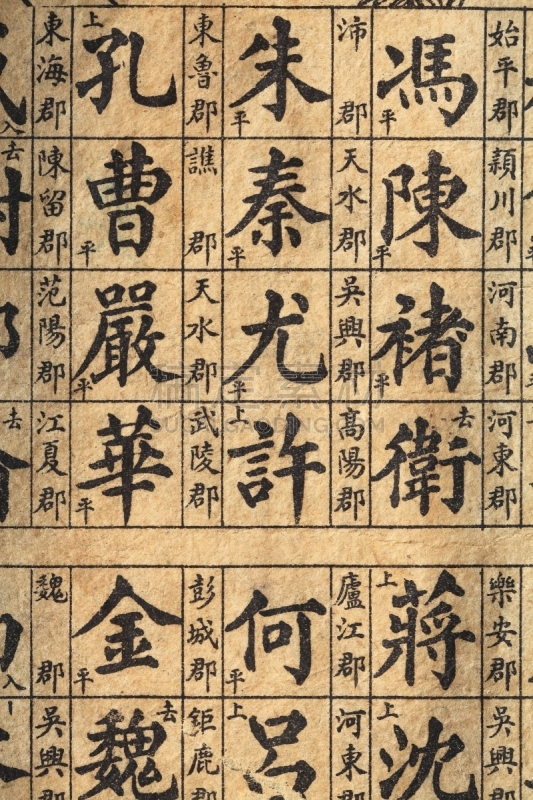 始平郡
馮 平
頴川郡
陳 平
河南郡
褚 平
河東郡
衛 去
沛郡
朱 平
天水郡
秦 平
吳興郡
尤 平
高陽郡
許 上
東魯郡
孔 上
譙郡
曹 平
天水郡
嚴 平
武陵郡
華 平
東海郡
入
陳留郡
去
范陽郡
江夏郡
去
樂安郡
蔣 上
吳興郡
沈 上
廬江郡
何 平
河東郡
呂 上
彭城郡
金 平
鉅鹿郡
魏 去
魏郡
入
吳興郡